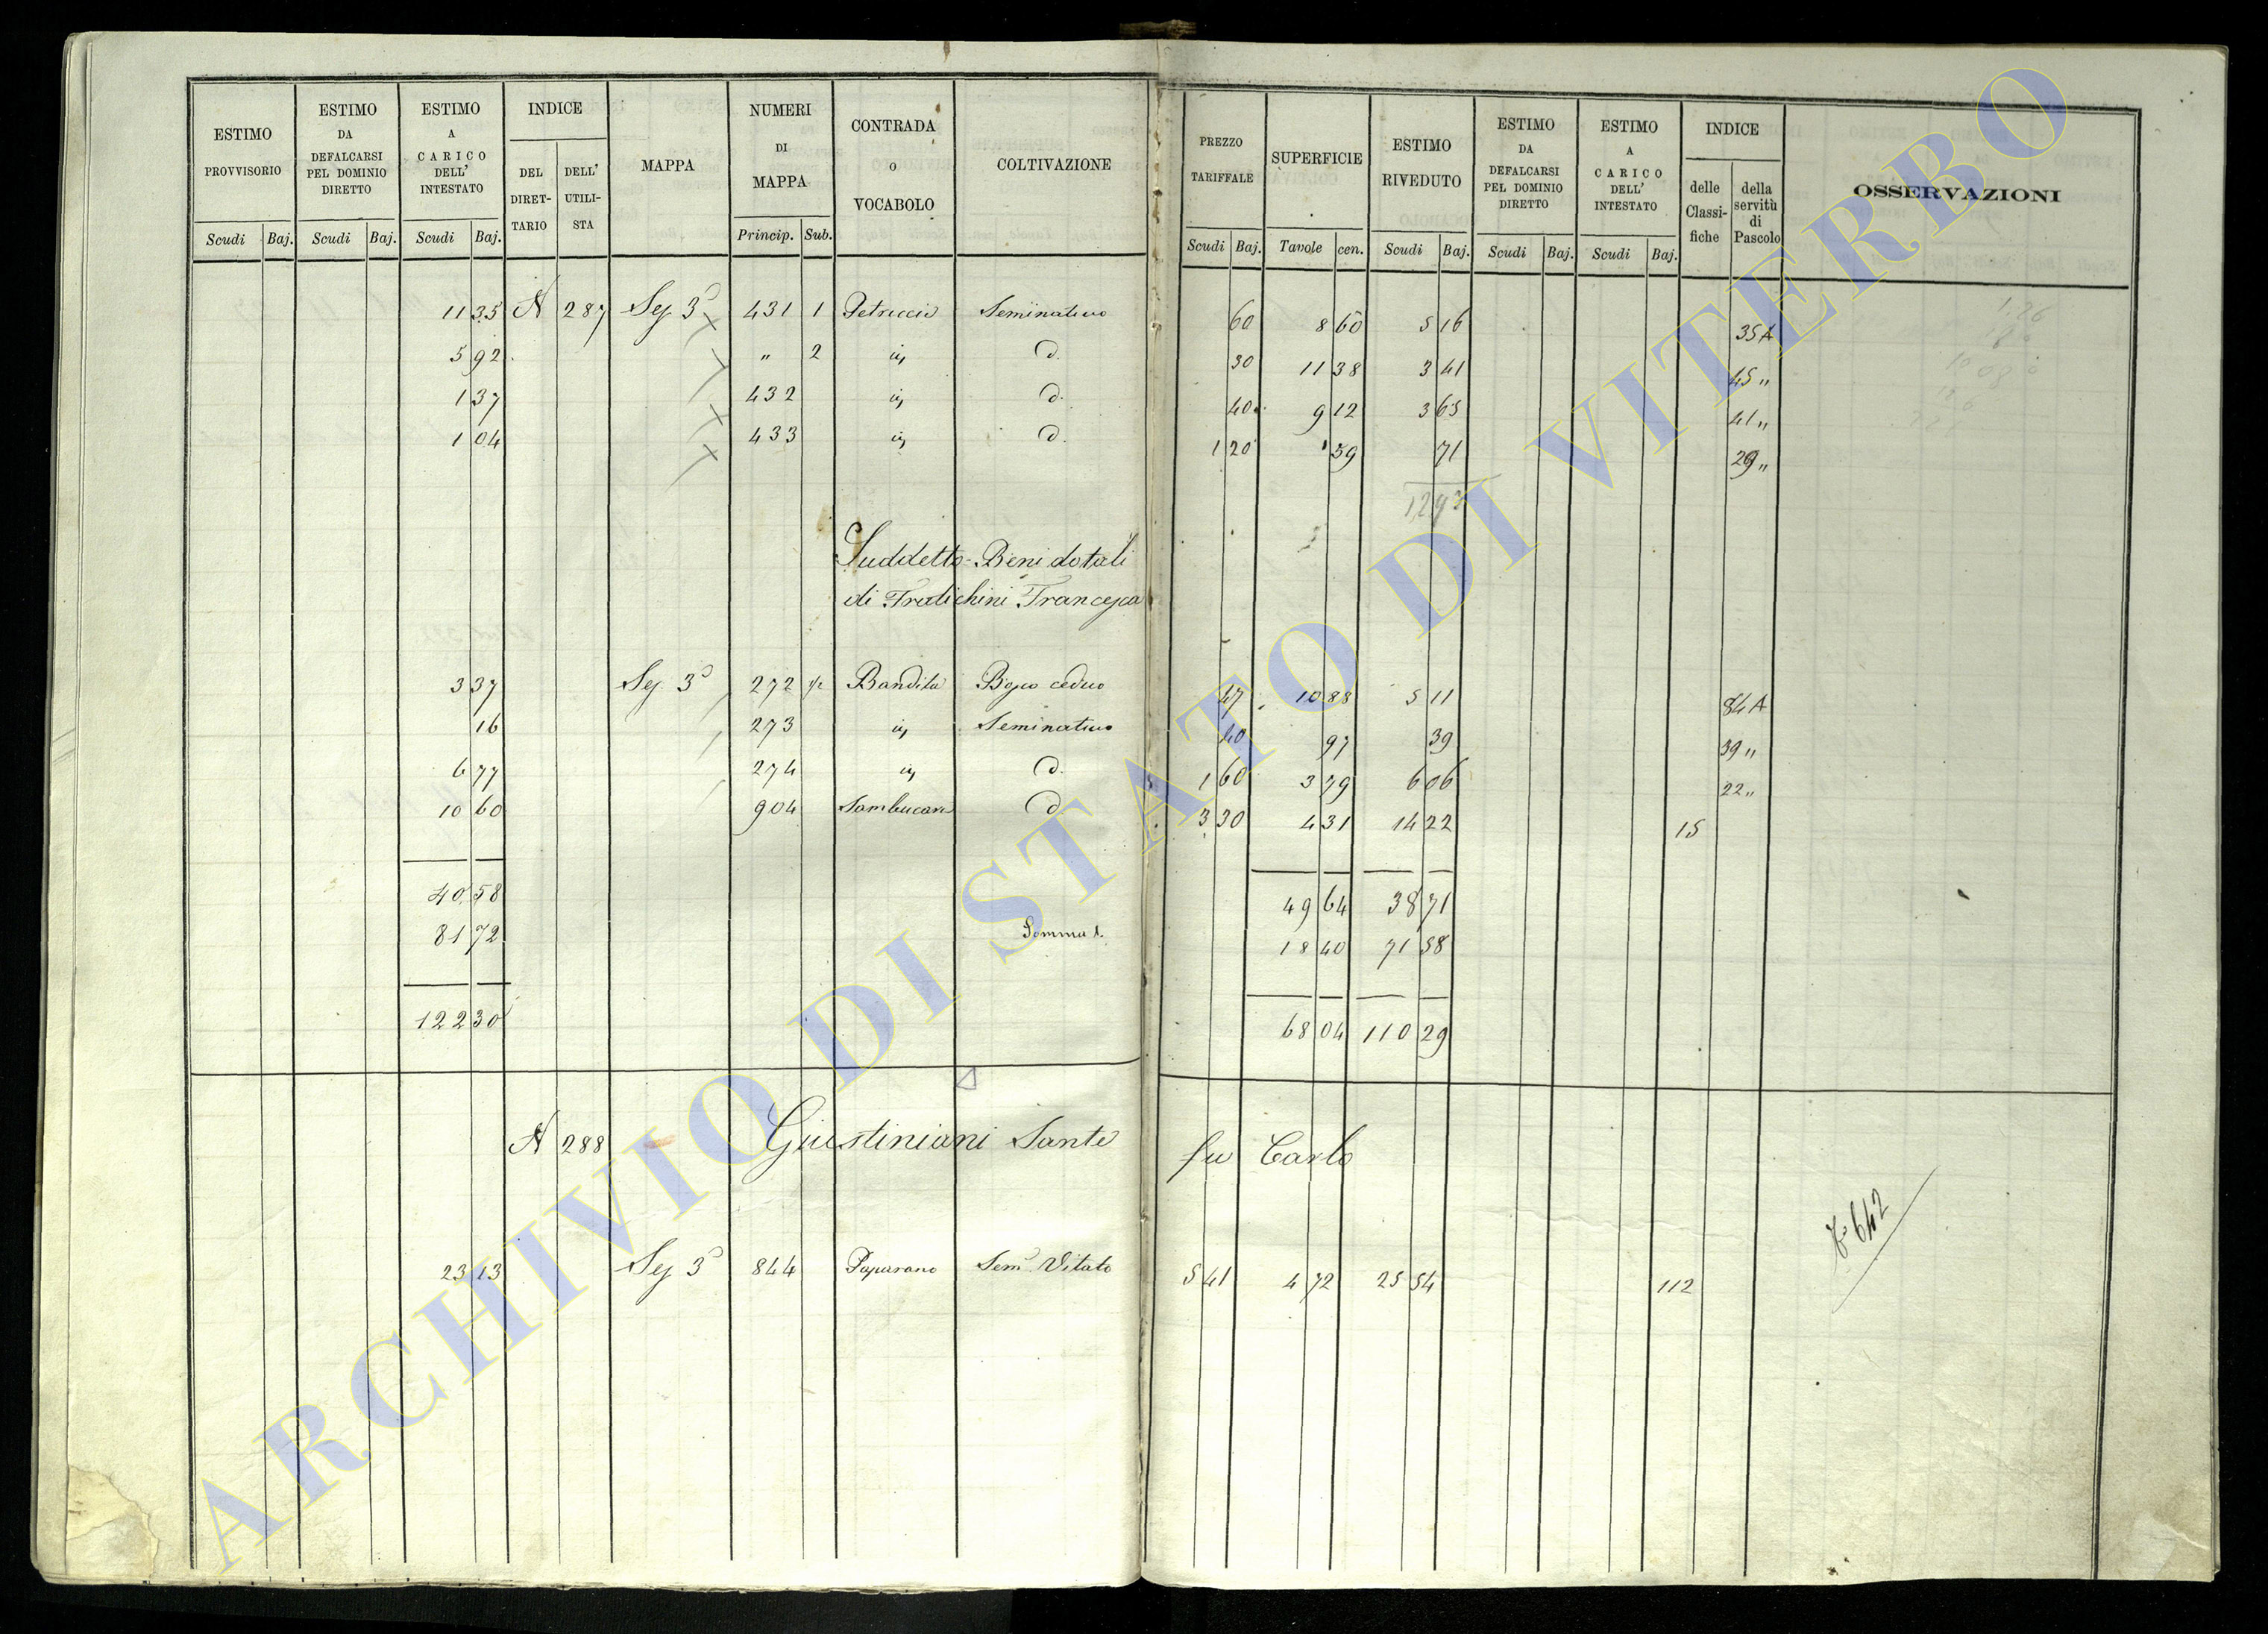 ESTIMO PROVVISORIO
ESTIMO DA DEFALCARSI PEL DOMINIO DIRETTO
ESTIMO A CARICO DELL' INTESTATO
INDICE
DEL DIRETTARIO
DELL' UTILISTA
MAPPA
NUMERI DI MAPPA
CONTRADA O VOCABOLO
COLTIVAZIONE
PREZZO TARIFFALE
SUPERFICIE
ESTIMO RIVEDUTO
ESTIMO DA DEFALCARSI PEL DOMINIO DIRETTO
ESTIMO A CARICO DELL' INTESTATO
INDICE
delle Classifiche
della servitù di Pascolo
OSSERVAZIONI
Scudi Baj. Scudi Baj. Scudi Baj. Princip. Sub. Scudi Baj. Tavole cen. Scudi Baj. Scudi Baj. Scudi Baj.
11 35 N 287 Sez 3ª 431 1 Petriccio Seminativo 60 8 60 5 16 35 A
5 92 " 2 d. 30 11 38 3 41 45 "
1 37 432 d. 40 9 12 3 65 41 "
1 04 433 d. 1 20 59 71 29 "
12 93
Suddetto - Beni dotali
di Fratichini Francesca
3 37 Sez. 3ª 272 1/2 Bandita Bosco ceduo 47 10 88 5 11 84 A
16 273 Seminativo 40 97 39 39 "
6 77 274 d. 1 60 3 79 6 06 22 "
10 60 904 Sambucare d. 3 30 4 31 14 22 15
40 58 49 64 38 71
81 72 Somma 1. 18 40 71 58
122 30 68 04 110 29
N 288 Giustiniani Sante fu Carlo
23 13 Sez 3ª 844 Paparano Sem.º Vitato 5 41 4 72 25 54 112
642
ARCHIVIO DI STATO DI VITERBO